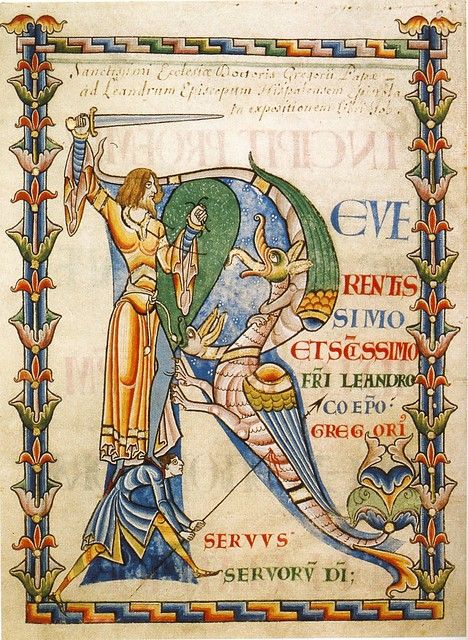 Sanctissimi Eclesiæ Doctoris Gregorii Papæ
ad Leandrum Episcopum Hispalensem
expositionem Libri
REVE
RENTIS
SIMO
ET SC̄ISSIMO
FR̄I LEANDRO
COEP̄O·
GREGORI᾽
SERVVS
SERVORV̄ DĪ;